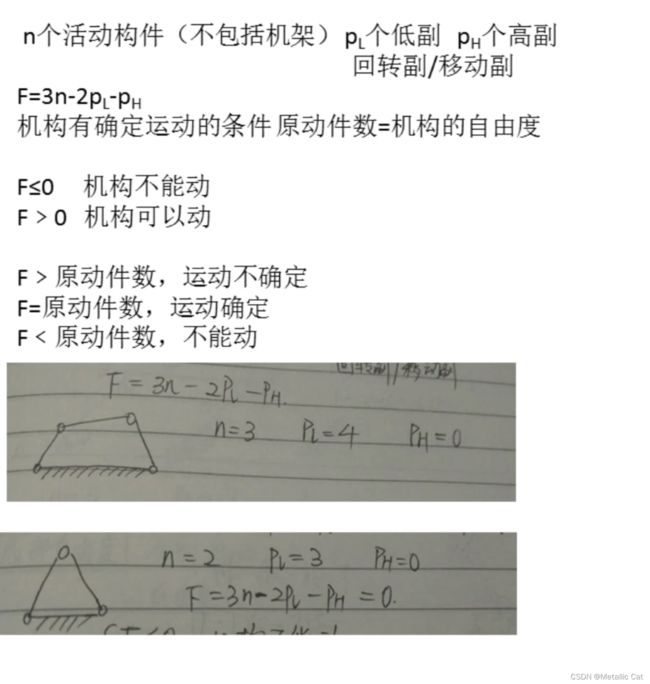 n个活动构件（不包括机架） pL个低副 pH个高副
回转副/移动副
F=3n-2pL-pH
机构有确定运动的条件 原动件数=机构的自由度
F≤0 机构不能动
F > 0 机构可以动
F > 原动件数，运动不确定
F=原动件数，运动确定
F < 原动件数，不能动
回转副/移动副
F = 3n - 2PL - PH.
n=3 PL=4 PH=0
n=2 PL=3 PH=0
F=3n-2PL-PH=0.
CSDN @Metallic Cat